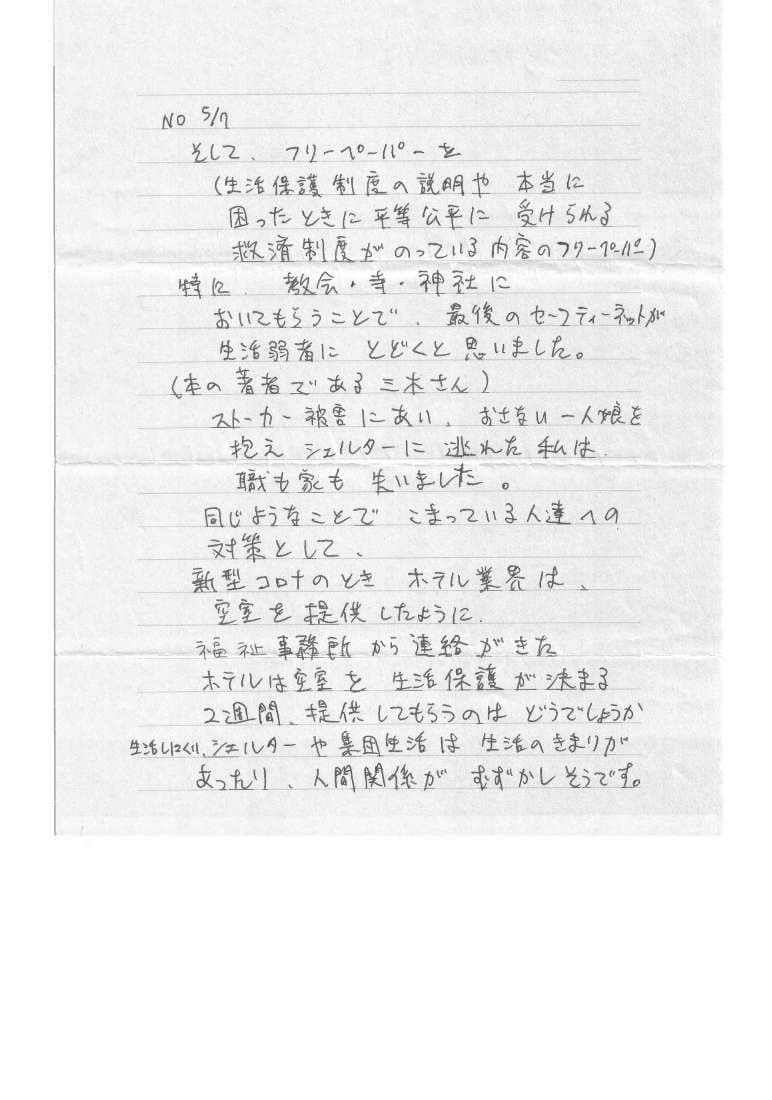 NO 5/7
そして、フリーペーパーを
(生活保護制度の説明や 本当に
困ったときに平等公平に 受けられる
救済制度がのっている内容のフリーペーパー)
特に、教会・寺・神社に
おいてもらうことで、最後のセーフティーネットが
生活弱者に とどくと思いました。
(本の著者である三木さん)
ストーカー被害にあい、おさない一人娘を
抱え シェルターに 逃れた私は、
職も家も 失いました。
同じようなことで こまっている人達への
対策として、
新型コロナのとき ホテル業界は、
空室を提供したように、
福祉事務所から連絡がきた
ホテルは空室を 生活保護が決まる
2週間、提供してもらうのは どうでしょうか
生活しにくい、シェルターや集団生活は 生活のきまりが
あったり、人間関係が むずかしそうです。